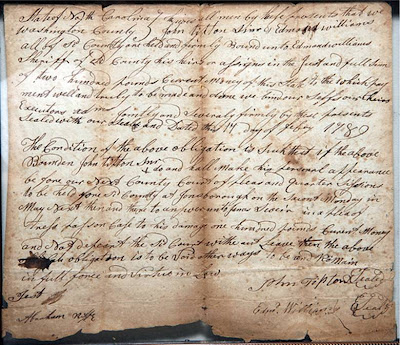 State of North Carolina } Know all men by these presents that we
Washington County } John Tipton Snr Edmond Williams
all of Sd County are held and firmly Bound unto Edmond Williams
Sheriff of Sd County his heirs or assigns in the Just and full sum
of two hundred pounds Current Money of this State to the which pay
ment well and truly to be made and done we bind our Selfs our heirs
Executors Jointly and Severaly firmly by these presents
Sealed with our Seals and Dated this 14 day of Feby 178
The Condition of the above obligation is Such that if the above
Bounden John Tipton Snr do and Shall Make his personal appearance
before our Next County Court of pleas and Quarter Sessions
to be held for Sd County at Jonesborough on the Second Monday in
May Next then and there to answer James Sevier in a plea of
trespass on Case to his damage one hundred pounds Current Money
and Not depart the Sd Court without Leave then the above
obligation is to be Void otherways to be and Remain
in full force and Virtue in Law
John Tipton Seal
Edm. Williams Seal
Test
Abraham